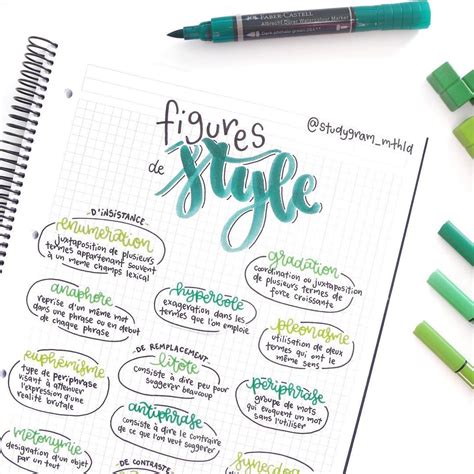 FABER-CASTELL
Albrecht Dürer Watercolour Marker
@studygram_mthld
figures
de style
D'INSISTANCE
énumération
juxtaposition de plusieurs
termes appartenant souvent
à un même champs lexical
gradation
coordination ou juxtaposition
de plusieurs termes de
force croissante
anaphore
reprise d'un même mot
dans une phrase ou en début
de chaque phrase
hyperbole
exagération dans les
termes que l'on emploie
pléonasme
utilisation de deux
termes qui ont le
même sens
DE REMPLACEMENT
euphémisme
type de périphrase
visant à atténuer
l'expression d'une
réalité brutale
litote
consiste à dire peu pour
suggérer beaucoup
périphrase
groupe de mots
qui évoquent un mot
sans l'utiliser
antiphrase
consiste à dire le contraire
de ce que l'on veut suggérer
métonymie
désignation d'un objet
par un tout
DE CONTRASTE